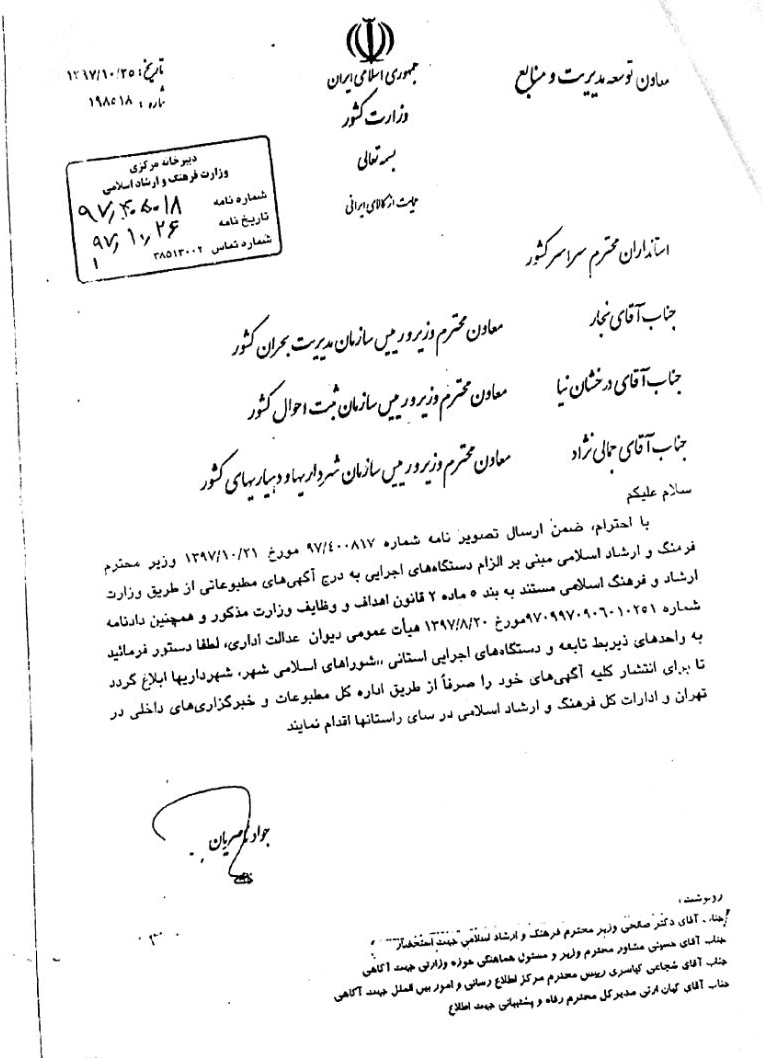 معاون توسعه مدیریت و منابع
جمهوری اسلامی ایران
وزارت کشور
بسمه تعالی
حمایت از کالای ایرانی
تاریخ: ۱۳۹۷/۱۰/۲۵
شماره: ۱۹۸۵۱۸
دبیرخانه مرکزی
وزارت فرهنگ و ارشاد اسلامی
شماره نامه ۹۷/۴۰۵۰۱۸
تاریخ نامه ۹۷/۱۰/۲۶
شماره تماس ۳۸۵۱۳۰۰۲
۱
استانداران محترم سراسر کشور
جناب آقای نجار معاون محترم وزیر و رییس سازمان مدیریت بحران کشور
جناب آقای درخشان نیا معاون محترم وزیر و رییس سازمان ثبت احوال کشور
جناب آقای جمالی نژاد معاون محترم وزیر و رییس سازمان شهرداریها و دهیاریهای کشور
سلام علیکم
با احترام، ضمن ارسال تصویر نامه شماره ۹۷/۴۰۰۸۱۷ مورخ ۱۳۹۷/۱۰/۲۱ وزیر محترم
فرهنگ و ارشاد اسلامی مبنی بر الزام دستگاه‌های اجرایی به درج آگهی‌های مطبوعاتی از طریق وزارت
ارشاد و فرهنگ اسلامی مستند به بند ۵ ماده ۲ قانون اهداف و وظایف وزارت مذکور و همچنین دادنامه
شماره ۹۷۰۹۹۷۰۹۰۶۰۱۰۲۵۱مورخ ۱۳۹۷/۸/۲۰ هیأت عمومی دیوان عدالت اداری، لطفا دستور فرمائید
به واحدهای ذیربط تابعه و دستگاه‌های اجرایی استانی ،،شوراهای اسلامی شهر، شهرداریها ابلاغ گردد
تا برای انتشار کلیه آگهی‌های خود را صرفاً از طریق اداره کل مطبوعات و خبرگزاری‌های داخلی در
تهران و ادارات کل فرهنگ و ارشاد اسلامی در سای راستانها اقدام نمایند
جواد ناصریان
رونوشت:
جناب آقای دکتر صالحی وزیر محترم فرهنگ و ارشاد اسلامی جهت استحضار
جناب آقای حسینی مشاور محترم وزیر و مسئول هماهنگی حوزه وزارتی جهت آگاهی
جناب آقای شجاعی کیاسری رییس محترم مرکز اطلاع رسانی و امور بین الملل جهت آگاهی
جناب آقای کیان ارثی مدیرکل محترم رفاه و پشتیبانی جهت اطلاع